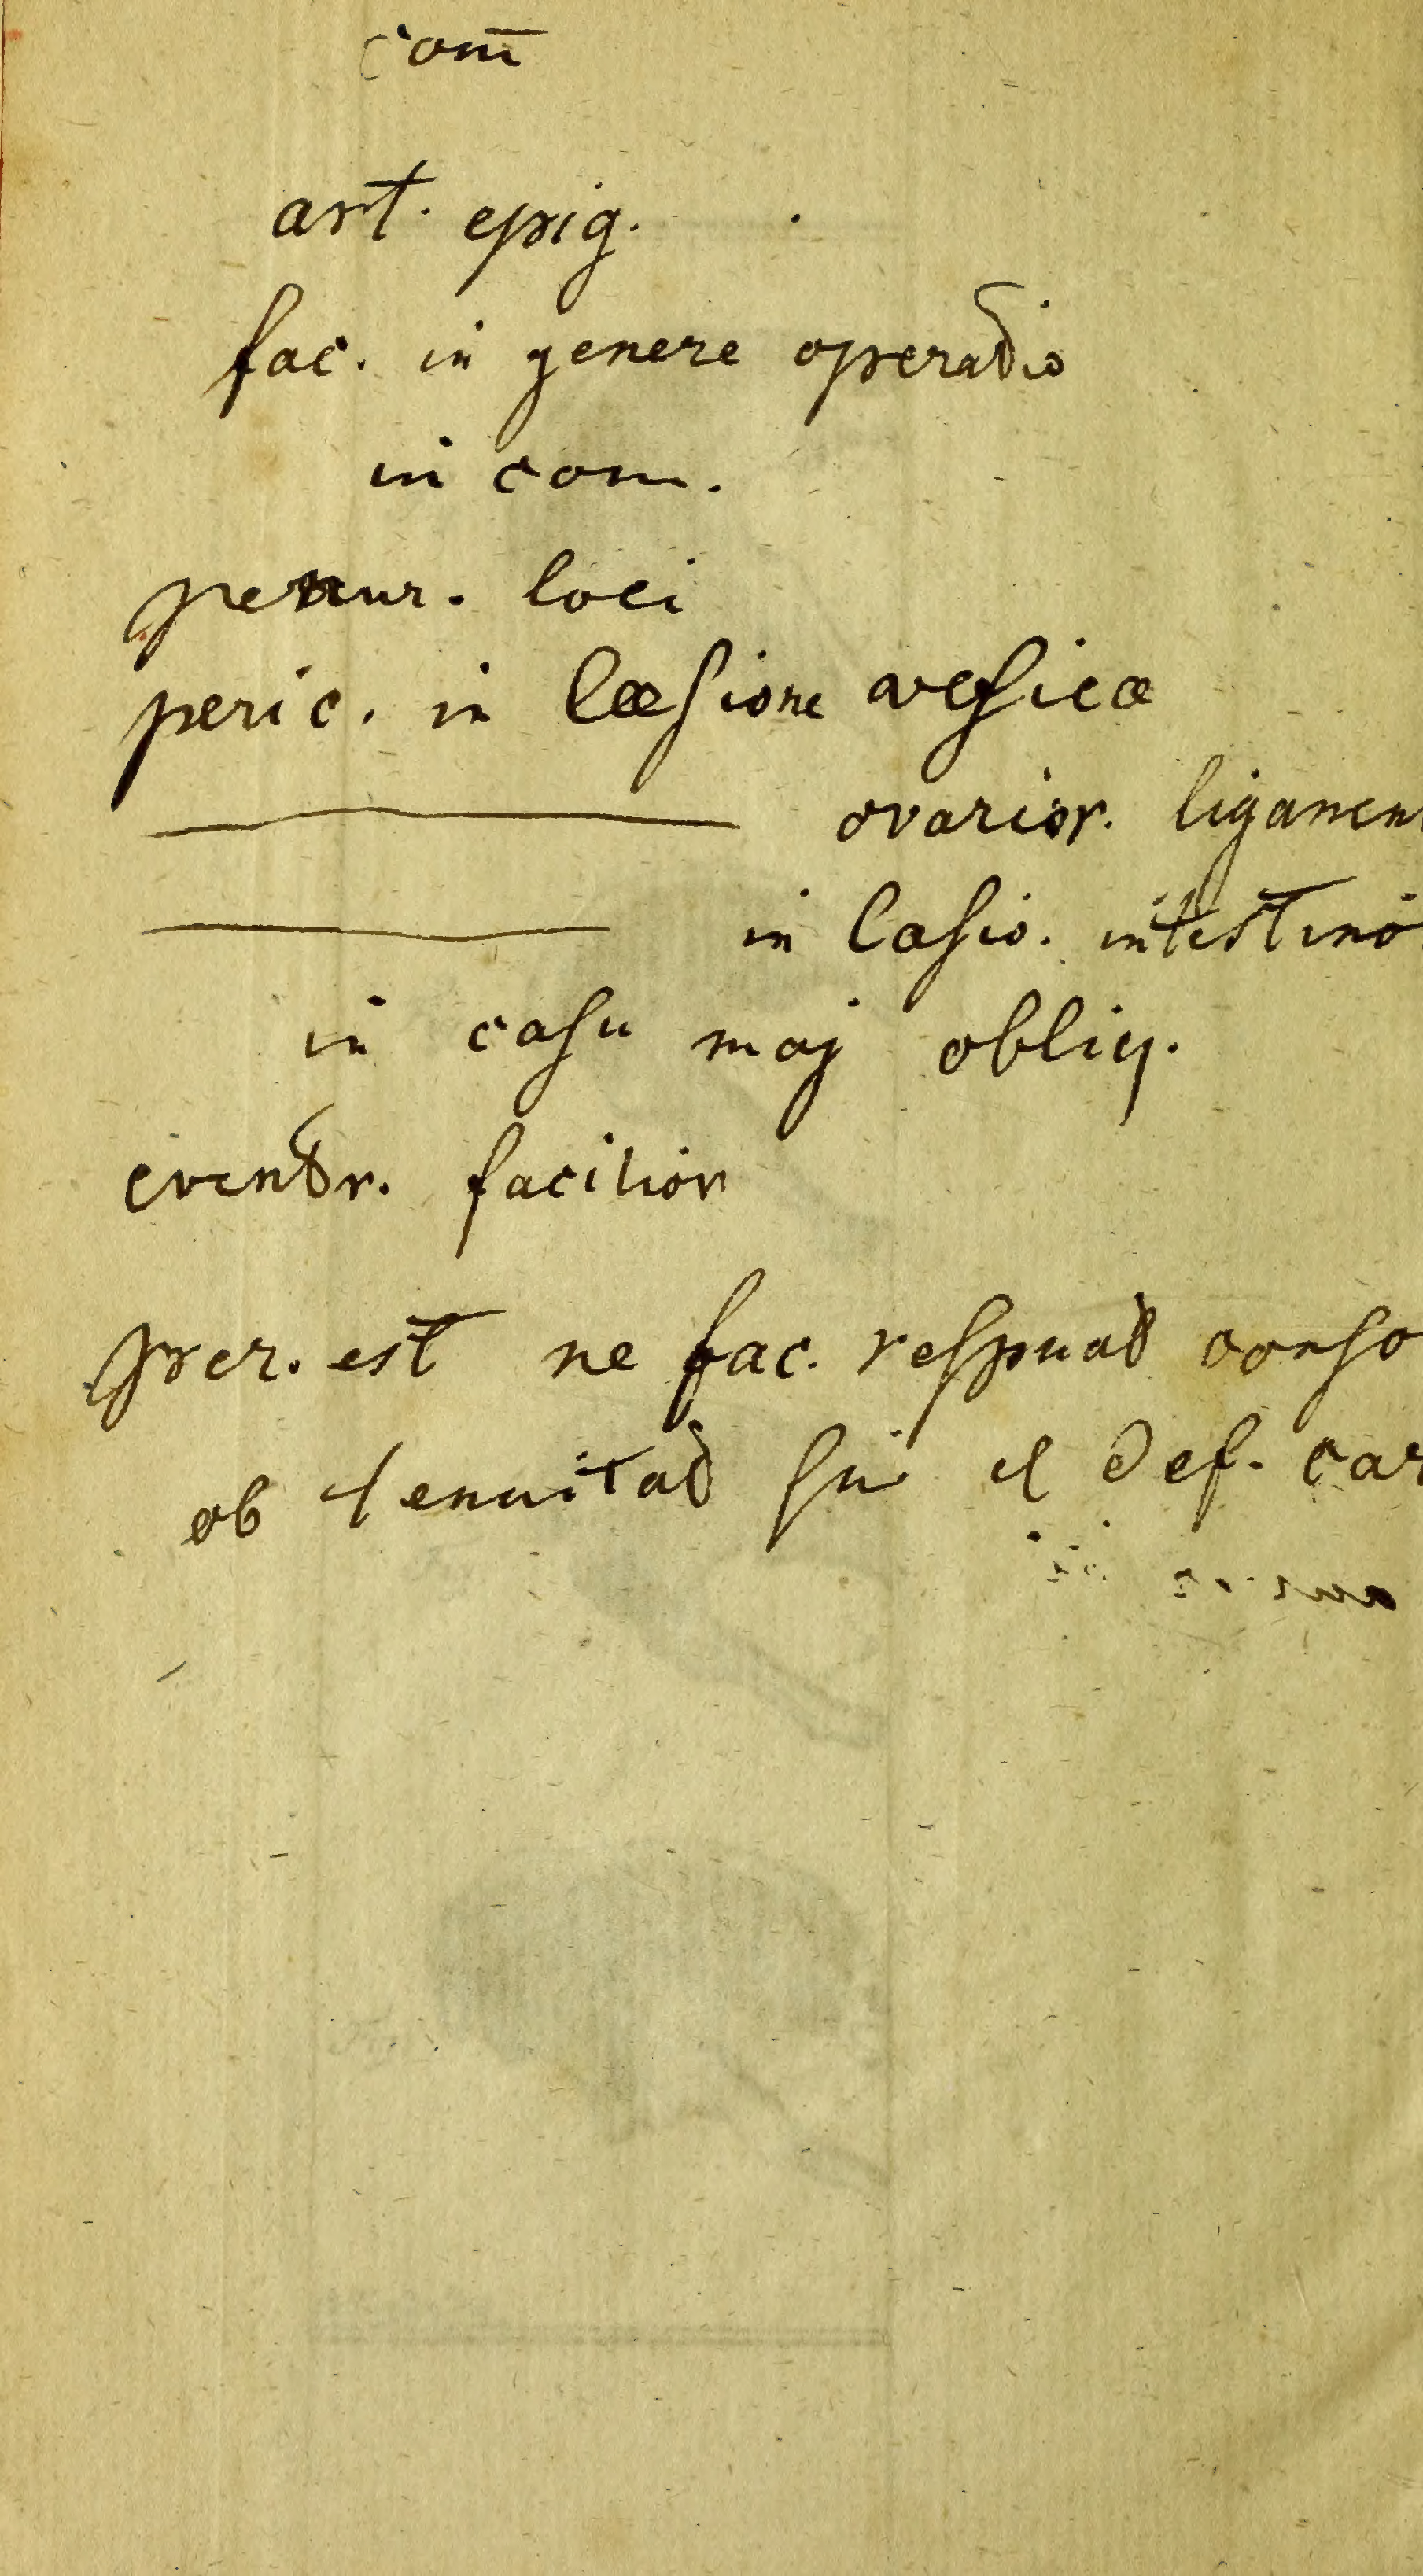 com̅
art. epig.
fac. in genere operatio
in com.
penur. loci
peric. in læsione vesicæ
ovarior. ligamen
in læsio. intestino
in casu maj obliq.
eventr. facilior
est ne fac. respuat conso
ob tenuitat sui et def. car